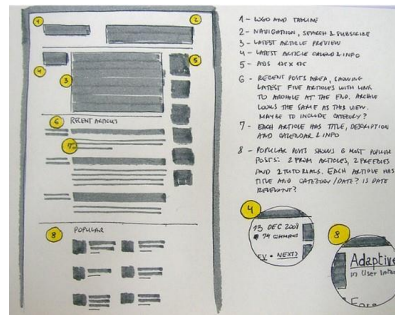 1
2
3
4
5
6
RECENT ARTICLES
7
8
POPULAR
1 - LOGO AND TAGLINE
2 - NAVIGATION, SEARCH & SUBSCRIBE
3 - LATEST ARTICLE PREVIEW
4 - LATEST ARTICLE CALENDAR & INFO
5 - ADS 125 X 125
6 - RECENT POSTS AREA, SHOWING
LATEST FIVE ARTICLES WITH LINK
TO ARCHIVE AT THE END. ARCHIVE
LOOKS THE SAME AS THIS VIEW.
MAYBE TO INCLUDE CATEGORY?
7 - EACH ARTICLE HAS TITLE, DESCRIPTION
AND CALENDAR & INFO
8 - POPULAR POSTS SHOWS 6 MOST POPULAR
POSTS: 2 FROM ARTICLES, 2 FREEBIES
AND 2 TUTORIALS. EACH ARTICLE HAS
TITLE AND CATEGORY/DATE? IS DATE
RELEVANT?
4
13 DEC 2009
NEXT
8
Adaptive
in User